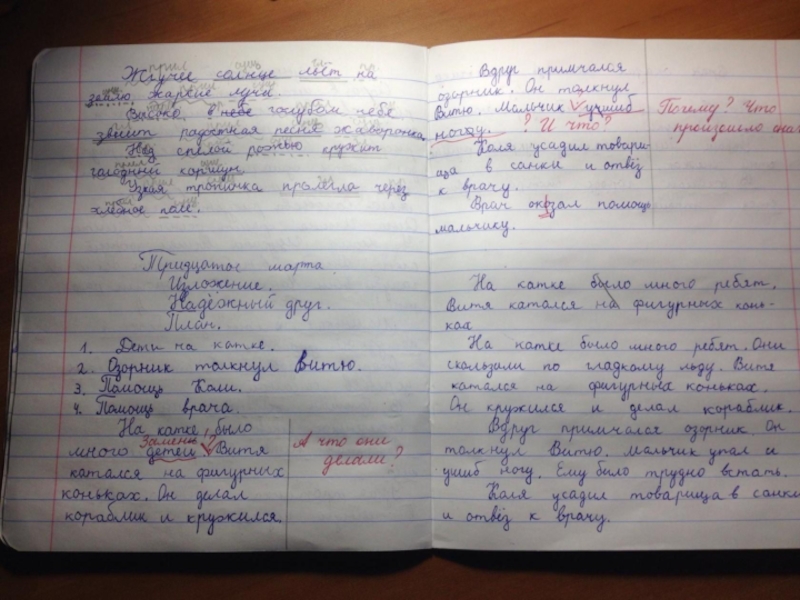 Жгучее солнце льёт на
землю жаркие лучи.
Высоко в небе голубом небе
звенит радостная песня жаворонка.
Над спелой рожью кружит
голодный коршун.
Узкая тропинка пролегла через
хлебное поле.
Тридцатое марта.
Изложение.
Надёжный друг.
План.
1. Дети на катке.
2. Озорник толкнул Витю.
3. Помощь Коли.
4. Помощь врача.
На катке было
Замени
много детей. Витя
катался на фигурных
коньках. Он делал
кораблик и кружился.
А что они
делали?
Вдруг примчался
озорник. Он толкнул
Витю. Мальчик ушиб
ногу. ? И что?
Почему? Что
произошло
Коля усадил товари-
ща в санки и отвёз
к врачу.
Врач оказал помощь
мальчику.
На катке было много ребят.
Витя катался на фигурных конь-
ках
На катке было много ребят. Они
скользили по гладкому льду. Витя
катался на фигурных коньках.
Он кружился и делал кораблик.
Вдруг примчался озорник. Он
толкнул Витю. Мальчик упал и
ушиб ногу. Ему было трудно встать.
Коля усадил товарища в санки
и отвёз к врачу.